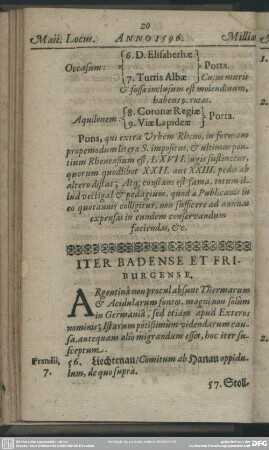 20
Maii. Locus. ANNO 1596. Milliæ
Occasum: 6. D. Elisabethæ
7. Turris Albæ Porta.
Cujus muris
& fossæ inclusum est molendinum,
habens 9. rotas.
Aquilonem: 8. Coronæ Regiæ
9. Viæ Lapideæ Porta.
Pons, qui extra Urbem Rheno, in formam
propemodum litera S. impositus, & ultimus pontium
Rhenensium est, LXVII. jugis sustinetur,
quorum quodlibet XXII. aut XXIII. pedes ab
altero distat; Atq; constans est fama, totum illud
vectigal & pedagium, quod à Publicanis in
eo quotannis colligitur, non sufficere ad annuas
expensas in eundem conservandum
faciendas, &c.
ITER BADENSE ET FRIBURGENSE.
ARgentinâ non procul absunt Thermarum
& Acidularum fontes, magni non solùm
in Germania, sed etiam apud Exteros
nominis; Istarum potissimùm videndarum causa,
antequam alio migrandum esset, hoc iter susceptum.
7. 56. Liechtenau/ Comitum ab Hanau oppidulum,
de quo supra.
57. Stoll-